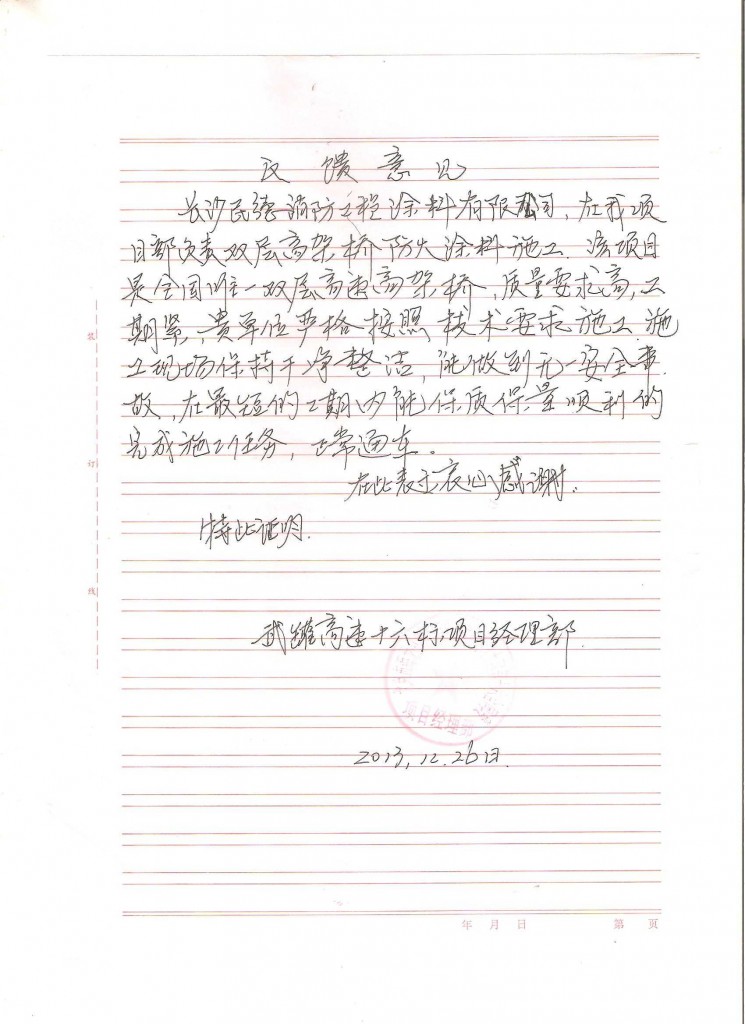 反馈意见
长沙民德消防工程涂料有限公司，在我项
目部负责双层高架桥防火涂料施工．该项目
是全国唯一双层高速高架桥，质量要求高，工
期紧，贵单位严格按照技术要求施工．施
工现场保持干净整洁，能做到无一安全事
故，在最短的工期内能保质保量顺利的
完成施工任务，正常通车。
在此表示衷心感谢．
特此证明．
武罐高速十六标项目经理部．
项目经理部
2013，12．26日．
装
订
线
年 月 日
第 页